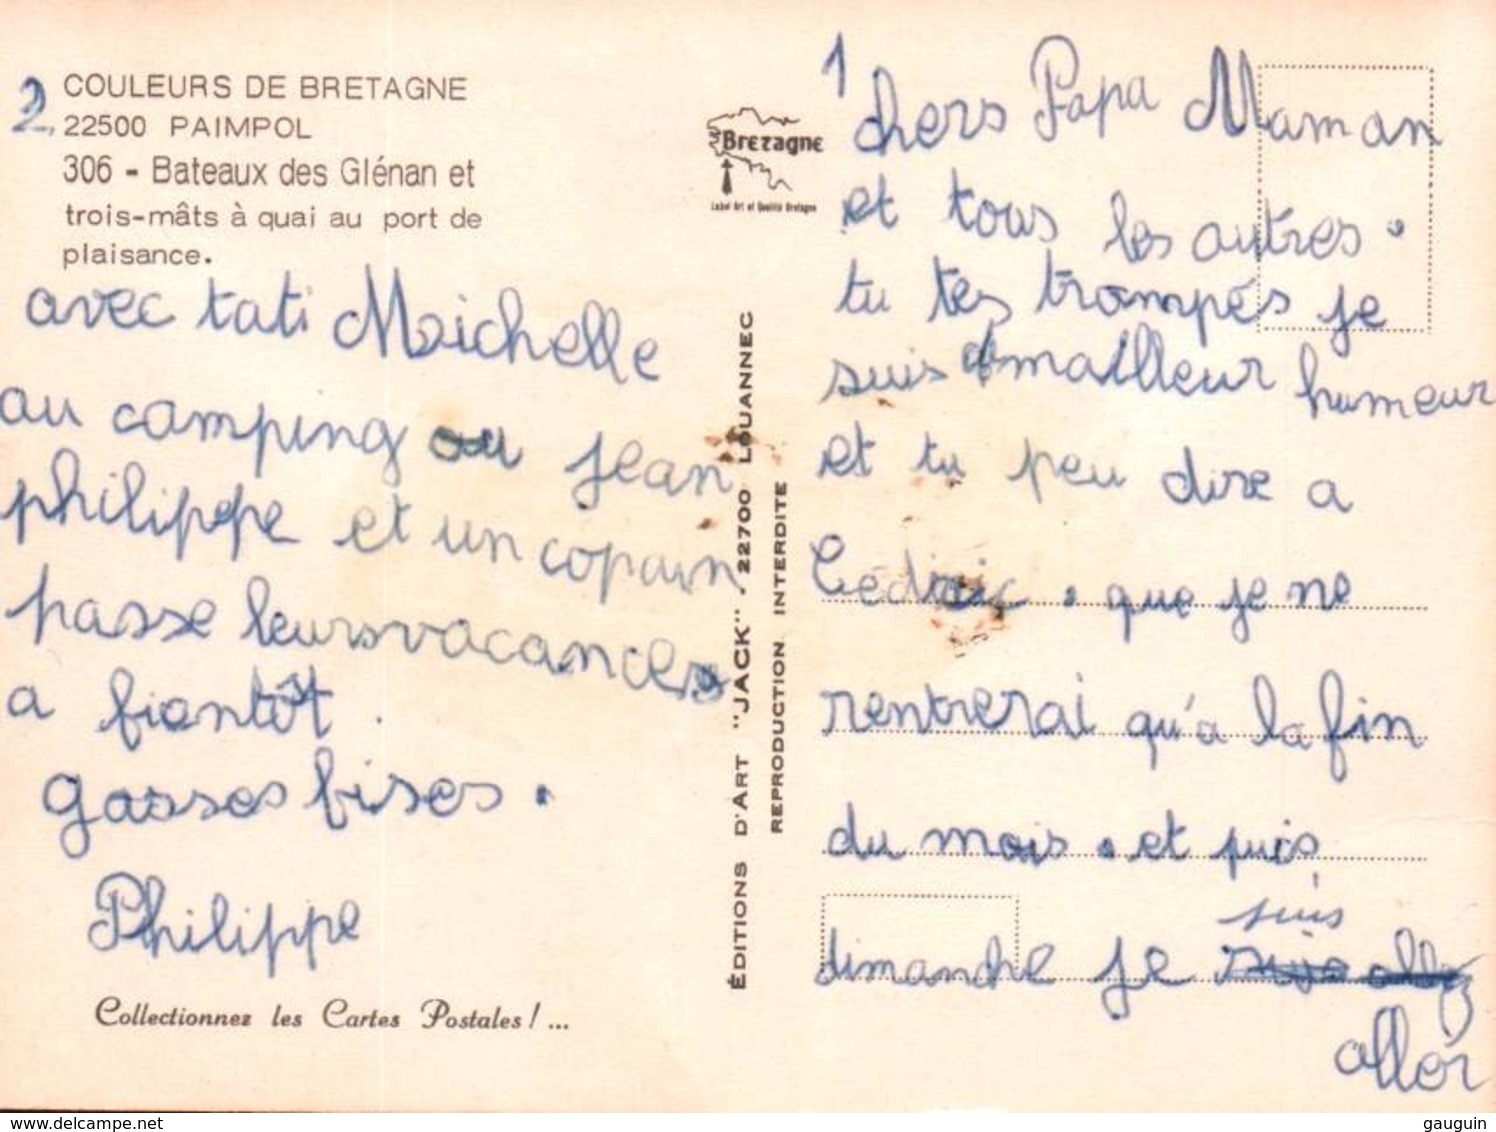 2
COULEURS DE BRETAGNE
22500 PAIMPOL
306 - Bateaux des Glénan et
trois-mâts à quai au port de
plaisance.
Bretagne
Label Art et Qualité Bretagne
1
chers Papa Maman
et tous les autres.
tu tes trompés je
suis malleur humeur
et tu peu dire a
Cédric. que je ne
rentrerai qu'a la fin
du mois. et puis
suis
dimanche je
aller
avec tati Maichelle
au camping ou jean
philippe et un copain
passe leurs vacances
a biontôt.
gosses bises.
Philippe
Collectionnez les Cartes Postales ! ...
ÉDITIONS D'ART "JACK" - 22700 LOUANNEC
REPRODUCTION INTERDITE
Delcampe.net
gauguin